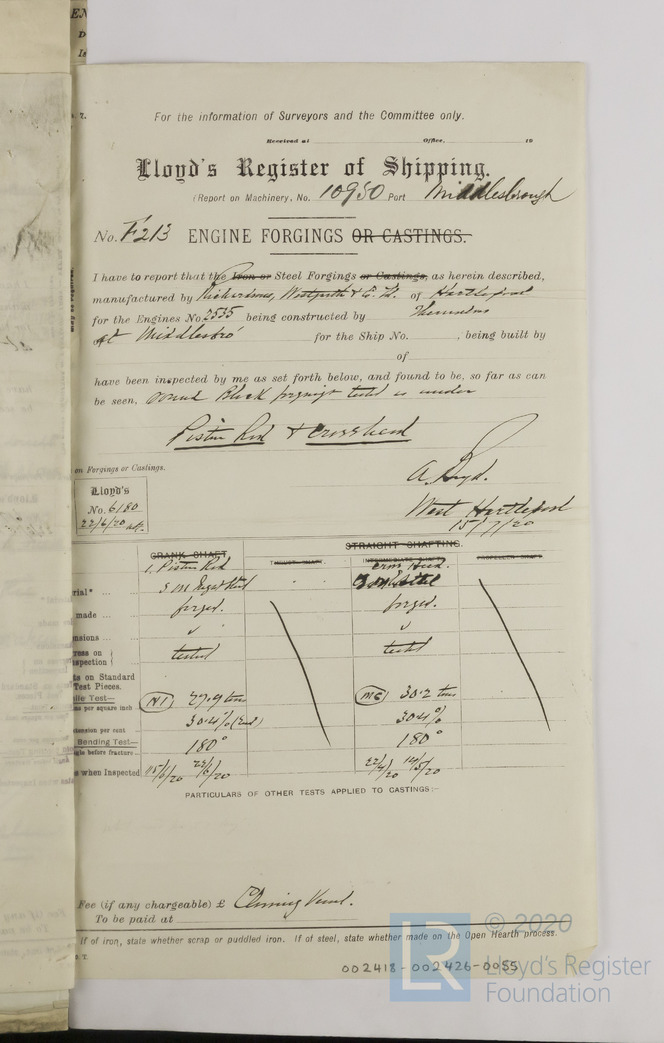 EN
For the information of Surveyors and the Committee only.
Received at Office, 19
Lloyd's Register of Shipping.
(Report on Machinery, No. 10950 Port Middlesbrough
No. F213 ENGINE FORGINGS OR CASTINGS.
I have to report that the Iron or Steel Forgings or Castings, as herein described,
manufactured by Richardsons, Westgarth & Co. Ld. of Hartlepool
for the Engines No. 2535 being constructed by Themselves
at Middlesbro' for the Ship No. , being built by
of
have been inspected by me as set forth below, and found to be, so far as can
be seen, sound Black forgings tested as under
Piston Rod & Crosshead
on Forgings or Castings.
Lloyd's
No. 6180
22/6/20
A. Boyd.
West Hartlepool
15/7/20
CRANK SHAFT. THRUST SHAFT. STRAIGHT SHAFTING. INTERMEDIATE PROPELLER SHAFT.
1. Piston Rod Head.
rial* S M Ingot Steel Steel
made forged. forged.
nsions
ress on
nspection tested tested
ts on Standard
Test Pieces.
ile Test—
ns per square inch 27.9 tons 30.2 tons
xtension per cent 30.4% 30.4%
Bending Test—
gle before fracture 180° 180°
e when Inspected 15/6/20 22/6/20 22/4/20 14/5/20
PARTICULARS OF OTHER TESTS APPLIED TO CASTINGS:—
Fee (if any chargeable) £
To be paid at
If of iron, state whether scrap or puddled iron. If of steel, state whether made on the Open Hearth process.
002418-002426-0055
LR
© 2020
Lloyd's Register
Foundation